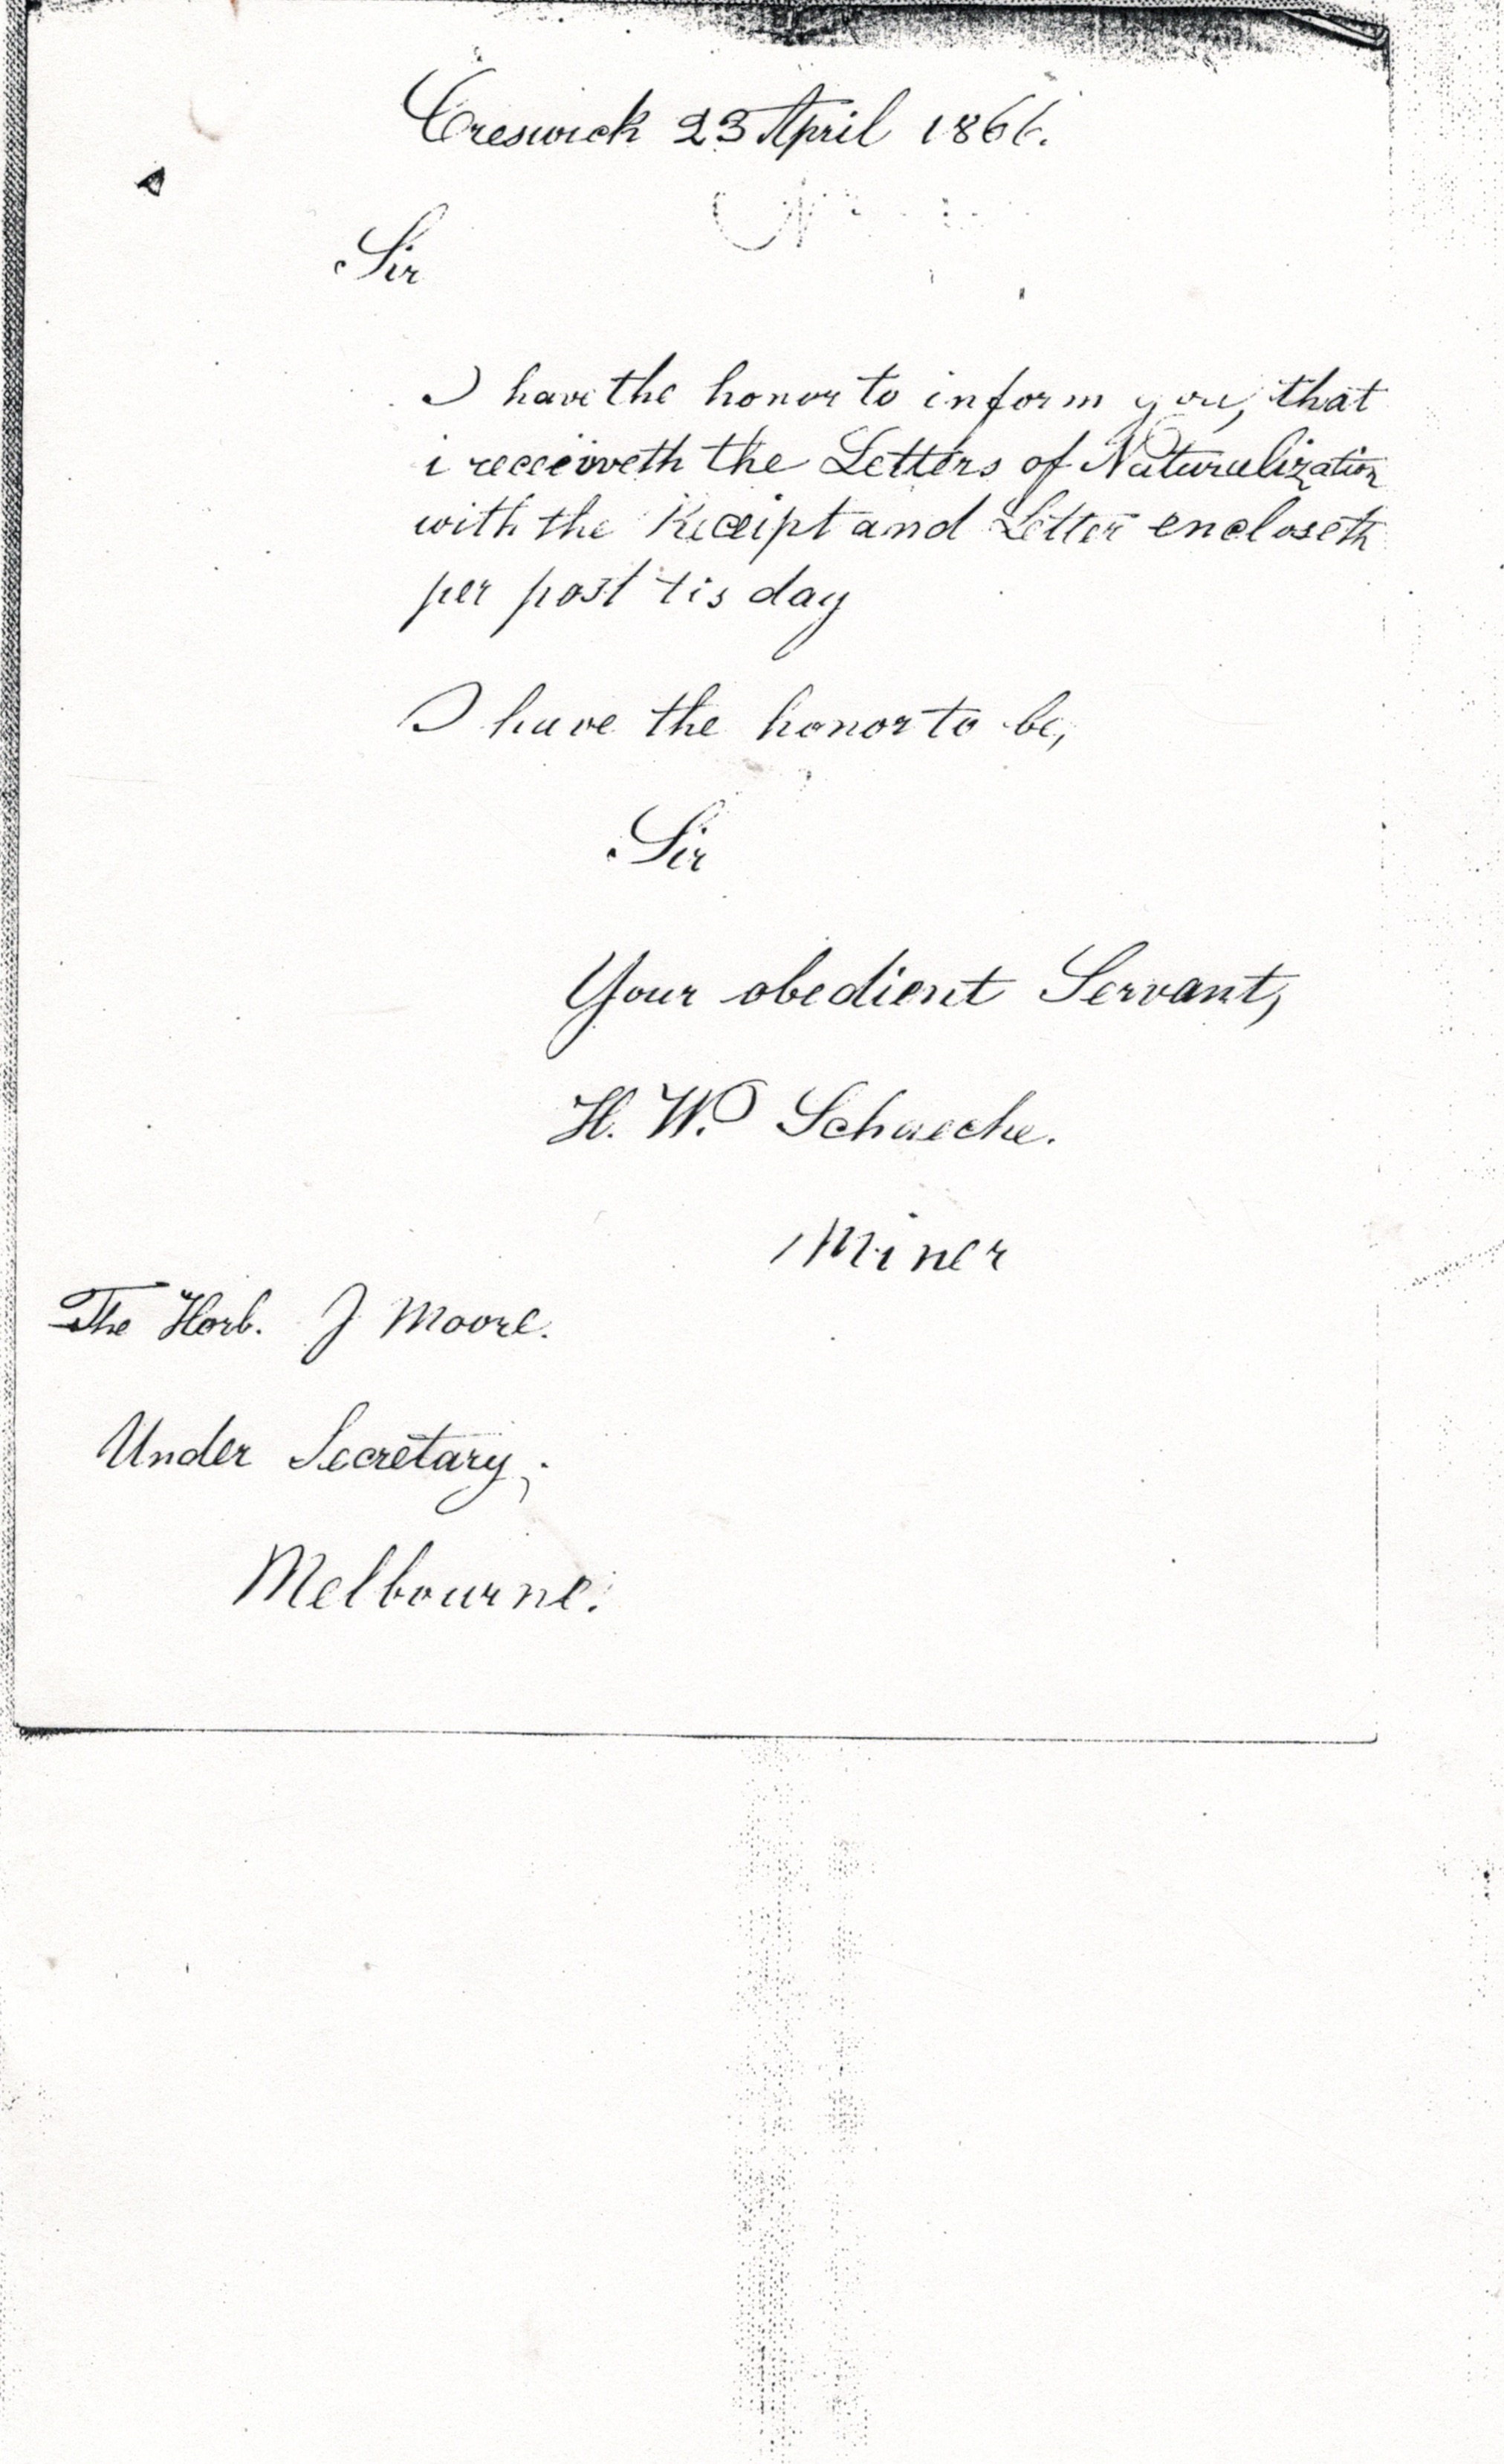 Creswick 23 April 1866.
Sir
I have the honor to inform you, that
i receiveth the Letters of Naturalization
with the Receipt and Letter encloseth
per post tis day
I have the honor to be,
Sir
Your obedient Servant,
H. W. Schaeche.
Miner
The Honb. J Moore.
Under Secretary,
Melbourne.